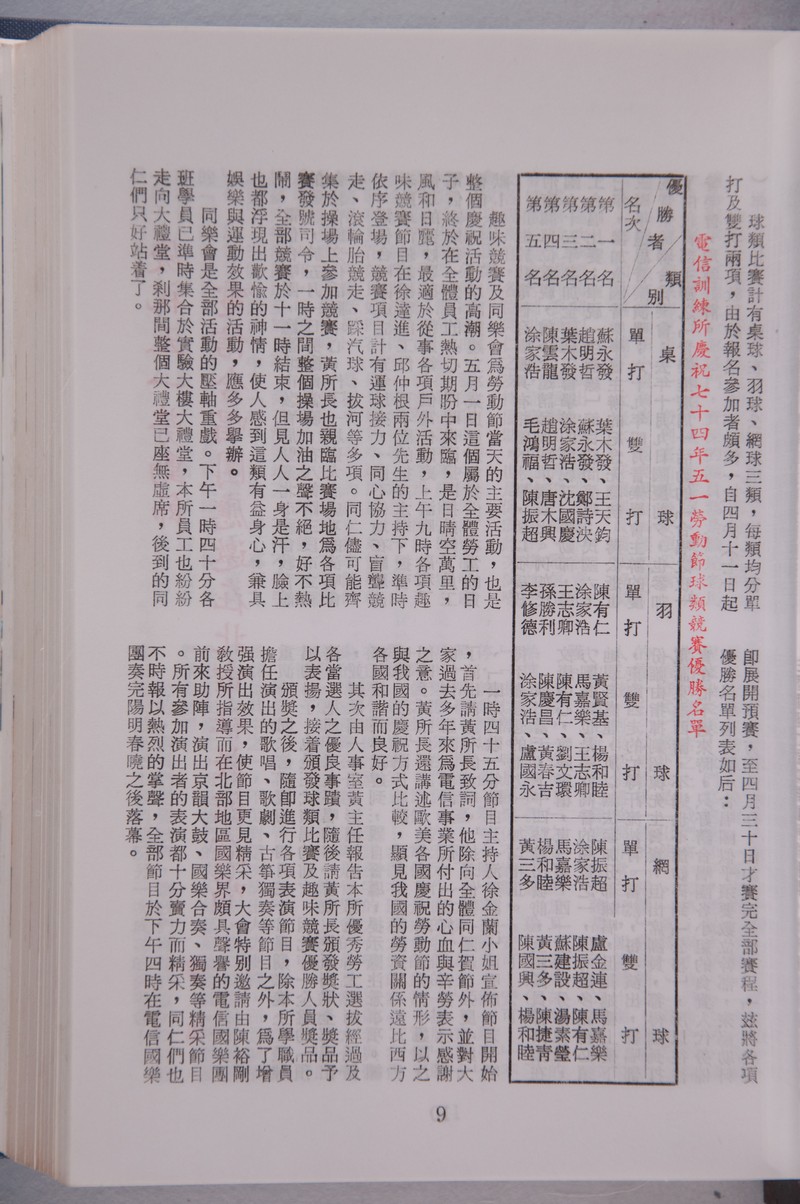 球類比賽計有桌球、羽球、網球三類，每類均分單
打及雙打兩項，由於報名參加者頗多，自四月十一日起
即展開預賽，至四月三十日才賽完全部賽程，茲將各項
優勝名單列表如后：
電信訓練所慶祝七十四年五一勞動節球類競賽優勝名單
優勝者 類別 名次
第一名
第二名
第三名
第四名
第五名
桌球
單打
蘇永發
趙明哲
葉木發
陳雲龍
涂家浩
雙打
葉木發、王天鈞
蘇永發、鄭詩泱
涂家浩、沈國慶
趙明哲、唐木興
毛鴻福、陳振超
羽球
單打
陳有仁
涂家浩
王志卿
孫勝利
李修德
雙打
黃賢基、楊和睦
馬嘉樂、王志卿
陳有仁、劉文環
陳慶昌、黃春吉
涂家浩、盧國永
網球
單打
陳振超
涂家浩
馬嘉樂
楊和睦
黃三多
雙打
盧金連、馬嘉樂
陳振超、陳有仁
蘇建設、湯素瑩
黃三多、陳捷青
陳國興、楊和睦
趣味競賽及同樂會為勞動節當天的主要活動，也是
整個慶祝活動的高潮。五月一日這個屬於全體勞工的日
子，終於在全體員工熱切期盼中來臨，是日晴空萬里，
風和日麗，最適於從事各項戶外活動，上午九時各項趣
味競賽節目在徐達進、邱仲根兩位先生的主持下，準時
依序登場，競賽項目計有運球接力、同心協力、盲聾競
走、滾輪胎競走、踩汽球、拔河等多項。同仁儘可能齊
集於操場上參加競賽，黃所長也親臨比賽場地為各項比
賽發號司令，一時之間整個操場加油之聲不絕，好不熱
鬧，全部競賽於十一時結束，但見人人一身是汗，臉上
也都浮現出歡愉的神情，使人感到這類有益身心，兼具
娛樂與運動效果的活動，應多多舉辦。
同樂會是全部活動的壓軸重戲。下午一時四十分各
班學員已準時集合於實驗大樓大禮堂，本所員工也紛紛
走向大禮堂，剎那間整個大禮堂已座無虛席，後到的同
仁們只好站着了。
一時四十五分節目主持人徐金蘭小姐宣佈節目開始
，首先請黃所長致詞，他除向全體同仁賀節外，並對大
家過去多年來為電信事業所付出的心血與辛勞表示感謝
之意。黃所長還講述歐美各國慶祝勞動節的情形，以之
與我國的慶祝方式比較，顯見我國的勞資關係遠比西方
各國和諧而良好。
其次由人事室黃主任報告本所優秀勞工選拔經過及
各當選人之優良事蹟，隨後請黃所長頒發獎狀、獎品予
以表揚，接着頒發球類比賽及趣味競賽優勝人員獎品。
頒獎之後，隨即進行各項表演節目，除本所學職員
擔任演出的歌唱、歌劇、古箏獨奏等節目之外，為了增
强演出效果，使節目更見精采，大會特別邀請由陳裕剛
教授所指導而在北部地區國樂界頗具聲譽的電信國樂團
前來助陣，演出京韻大鼓、國樂合奏、獨奏等精采節目
。所有參加演出者的表演都十分賣力而精采，同仁們也
不時報以熱烈的掌聲，全部節目於下午四時在電信國樂
團奏完陽明春曉之後落幕。
9